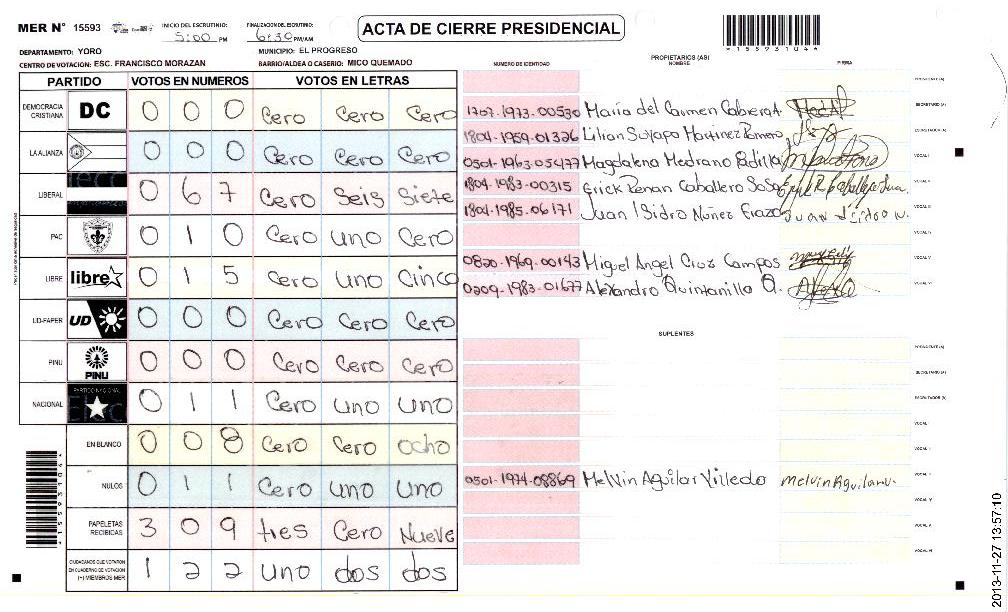 MER N° 15593 INICIO DEL ESCRUTINIO: 5:00 PM FINALIZACION DEL ESCRUTINIO: 6:30 PM/AM ACTA DE CIERRE PRESIDENCIAL
155931044
DEPARTAMENTO: YORO MUNICIPIO: EL PROGRESO
CENTRO DE VOTACION: ESC. FRANCISCO MORAZAN BARRIO/ALDEA O CASERIO: MICO QUEMADO
PARTIDO VOTOS EN NUMEROS VOTOS EN LETRAS
DEMOCRACIA CRISTIANA DC 0 0 0 Cero Cero Cero
LA ALIANZA 0 0 0 Cero Cero Cero
LIBERAL 0 6 7 Cero Seis Siete
PAC 0 1 0 Cero uno Cero
LIBRE libre 0 1 5 Cero Uno Cinco
UD-FAPER UD 0 0 0 Cero Cero Cero
PINU PINU 0 0 0 Cero Cero Cero
NACIONAL PARTIDO NACIONAL 0 1 1 Cero uno uno
EN BLANCO 0 0 8 Cero Cero ocho
NULOS 0 1 1 Cero uno uno
PAPELETAS RECIBIDAS 3 0 9 tres Cero Nueve
CIUDADANOS QUE VOTARON EN CUADERNO DE VOTACION (+) MIEMBROS MER 1 2 2 uno dos dos
PROPIETARIOS (AS)
NUMERO DE IDENTIDAD NOMBRE FIRMA
PRESIDENTE (A)
1707-1973-00530 Maria del Carmen Cabrera SECRETARIO (A)
1804-1959-01326 Lilian Suyapa Martinez Romero ESCRUTADOR (A)
0501-1963-05477 Magdalena Medrano Padilla VOCAL I
1804-1983-00315 Erick Renan Caballero Sosa VOCAL II
1804-1985-06171 Juan Isidro Nuñez Erazo VOCAL III
VOCAL IV
0820-1969-00143 Miguel Angel Cruz Campos VOCAL V
0209-1983-01677 Alexandro Quintanilla O. VOCAL VI
SUPLENTES
PRESIDENTE (A)
SECRETARIO (A)
ESCRUTADOR (A)
VOCAL I
VOCAL II
0501-1974-08869 Melvin Aguilar Villeda VOCAL III
VOCAL IV
VOCAL V
VOCAL VI
2013-11-27 13:57:10